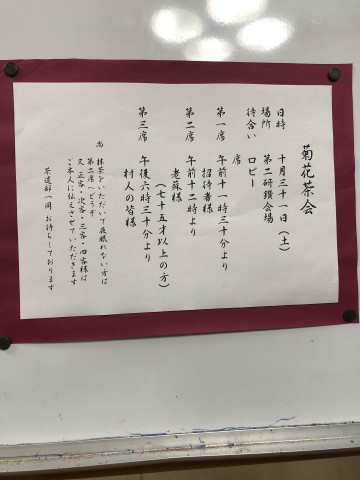 菊花茶会
日時　十月三十一日（土）
場所　第二研鑽会場
待合い　ロビー
席
第一席　午前十一時三十分より
招待者様
第二席　午前十二時より
老蘇様
（七十五才以上の方）
第三席　午後六時三十分より
村人の皆様
尚　抹茶をいただいて夜眠れない方は
第二席へどうぞ
又　正客・次客・三客・四客様は
ご本人に伝えさせていただきます
茶道部一同　お待ちしております